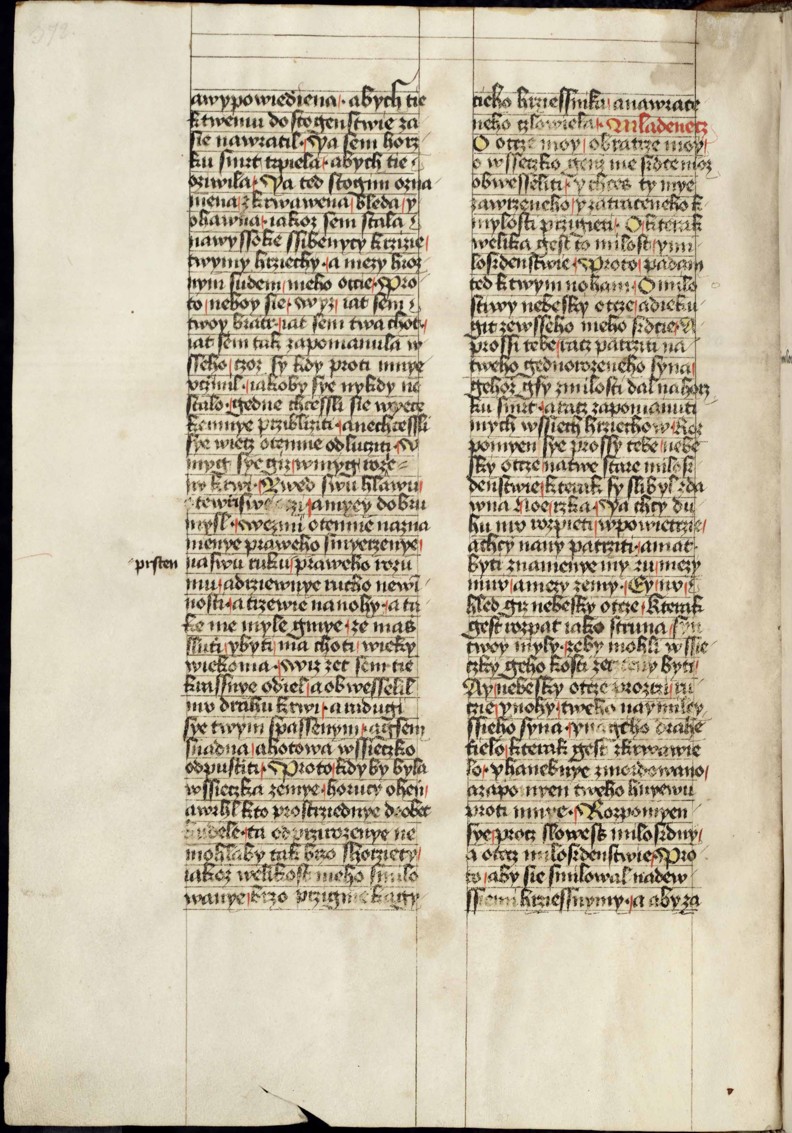 awypowiediena · abych tie
k twemu dostogenstwie za
sie nawratil · Ya sem horz
ku smrt trpiela · abych tie
oziwila · Ya ted stogim ozra
niena / zkrwawena / bleda / y
ohawna · iakoz sem stala
nawyssoke ssibenycy krzizie /
twymy hrziechy · a mezy hroz
nym sudem / meho otcie · Pro
to / neboy sie · wyz / iat sem
twoy bratr · iat sem twa chot ·
iat sem tak zapomanula w
sseho / czoz sy kdy proti mnye
vczinil · iakoby sye nykdy ne
stalo · gedne chcessli sie wyece
kemnye przibliziti · a nechcessli
sye wiecz otemne odlucziti ·
myg sye giz / wmyg wze
w krwi · Zwed swu hlawu /
otewrzi swe oczi / a myey dobru
mysl · wezmi otemne nazna
menye praweho smyerzenye /
prsten
na swu ruku / praweho rozu
mu / a dziewnye rucho newi
nosti / a trzewie na nohy · a tu
ke me myle gmye · ze mas
sluti / y byti / ma choti / wieky
wiekoma · wiz zet sem tie
krassnye odiel / a obwesselil
mu drahu krwi · a radugi
sye twym spassenym · a gsem
snadna / a hotowa wssieczko
odpustiti · Proto / kdy by byla
wssieczka zemye / horucy ohen /
a wrhl kto prostrziednye drobet
kudele · ta od przirozenye ne
mohla by tak brzo shorziety /
iakoz welikost meho smilo
wanye / brzo przigme kagy
cieho hrziessnika / a nawrace
neho czlowieka · Mladenecz
O otcze moy / o bratrze moy /
o wssieczko genz me srdce moz
obwesseliti · y chces ty mye
zawrzeneho / y zatraceneho k
mylosti przigieti · O kterak
welika gest to milost / y mi
losrdenstwie · Proto / padam
ted k twym noham · O milo
stiwy nebesky otcze / a dieku
git ze wsseho meho srdcie ·
prossi tebe / racz patrziti na
tweho gednorozeneho syna /
gehoz gsy z milosti dal na horz
ku smrt · a racz zapomanuti
mych wssiech hrziechow · Roz
pomyen sye prossy tebe / nebe
sky otcze / na twe stare milosr
denstwie / kterak sy slibyl da
wna Noe / rzka · Ya chcy du
hu mu rozpieti / w powietrzie /
a chcy na ny patrziti · a mat
byti znamenye my zu / mezy
mnu / a mezy zemy · Ey / nu /
hled giz nebesky otcze / kterak
gest rozpat iako struna / syn
twoy myly · ze by mohli wssie
czky geho kosti zecteny byti /
Ay nebesky otcze / vrozezri ru
cie / y nohy / tweho naymiley
ssieho syna · y na geho drahe
tielo / kterak gest zkrwawie
lo · y hanebnye zmordowano /
a zapomyen tweho hnyewu
proti mnye · Rozpomyen
sye / procz slowess milosrdny /
a otecz milosrdenstwie · Pro
to / aby sie smilowal nadew
ssiemi hrziessnymy · a aby za